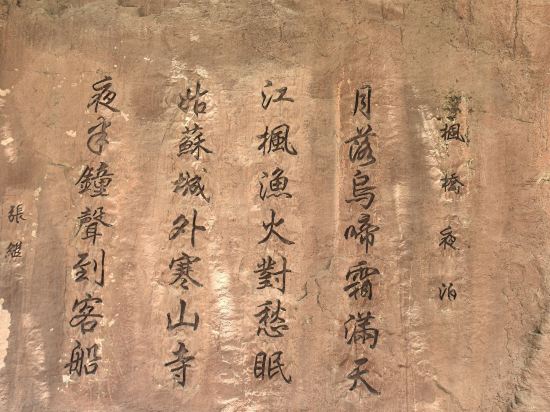 楓橋夜泊
月落烏啼霜滿天
江楓漁火對愁眠
姑蘇城外寒山寺
夜半鐘聲到客船
張繼